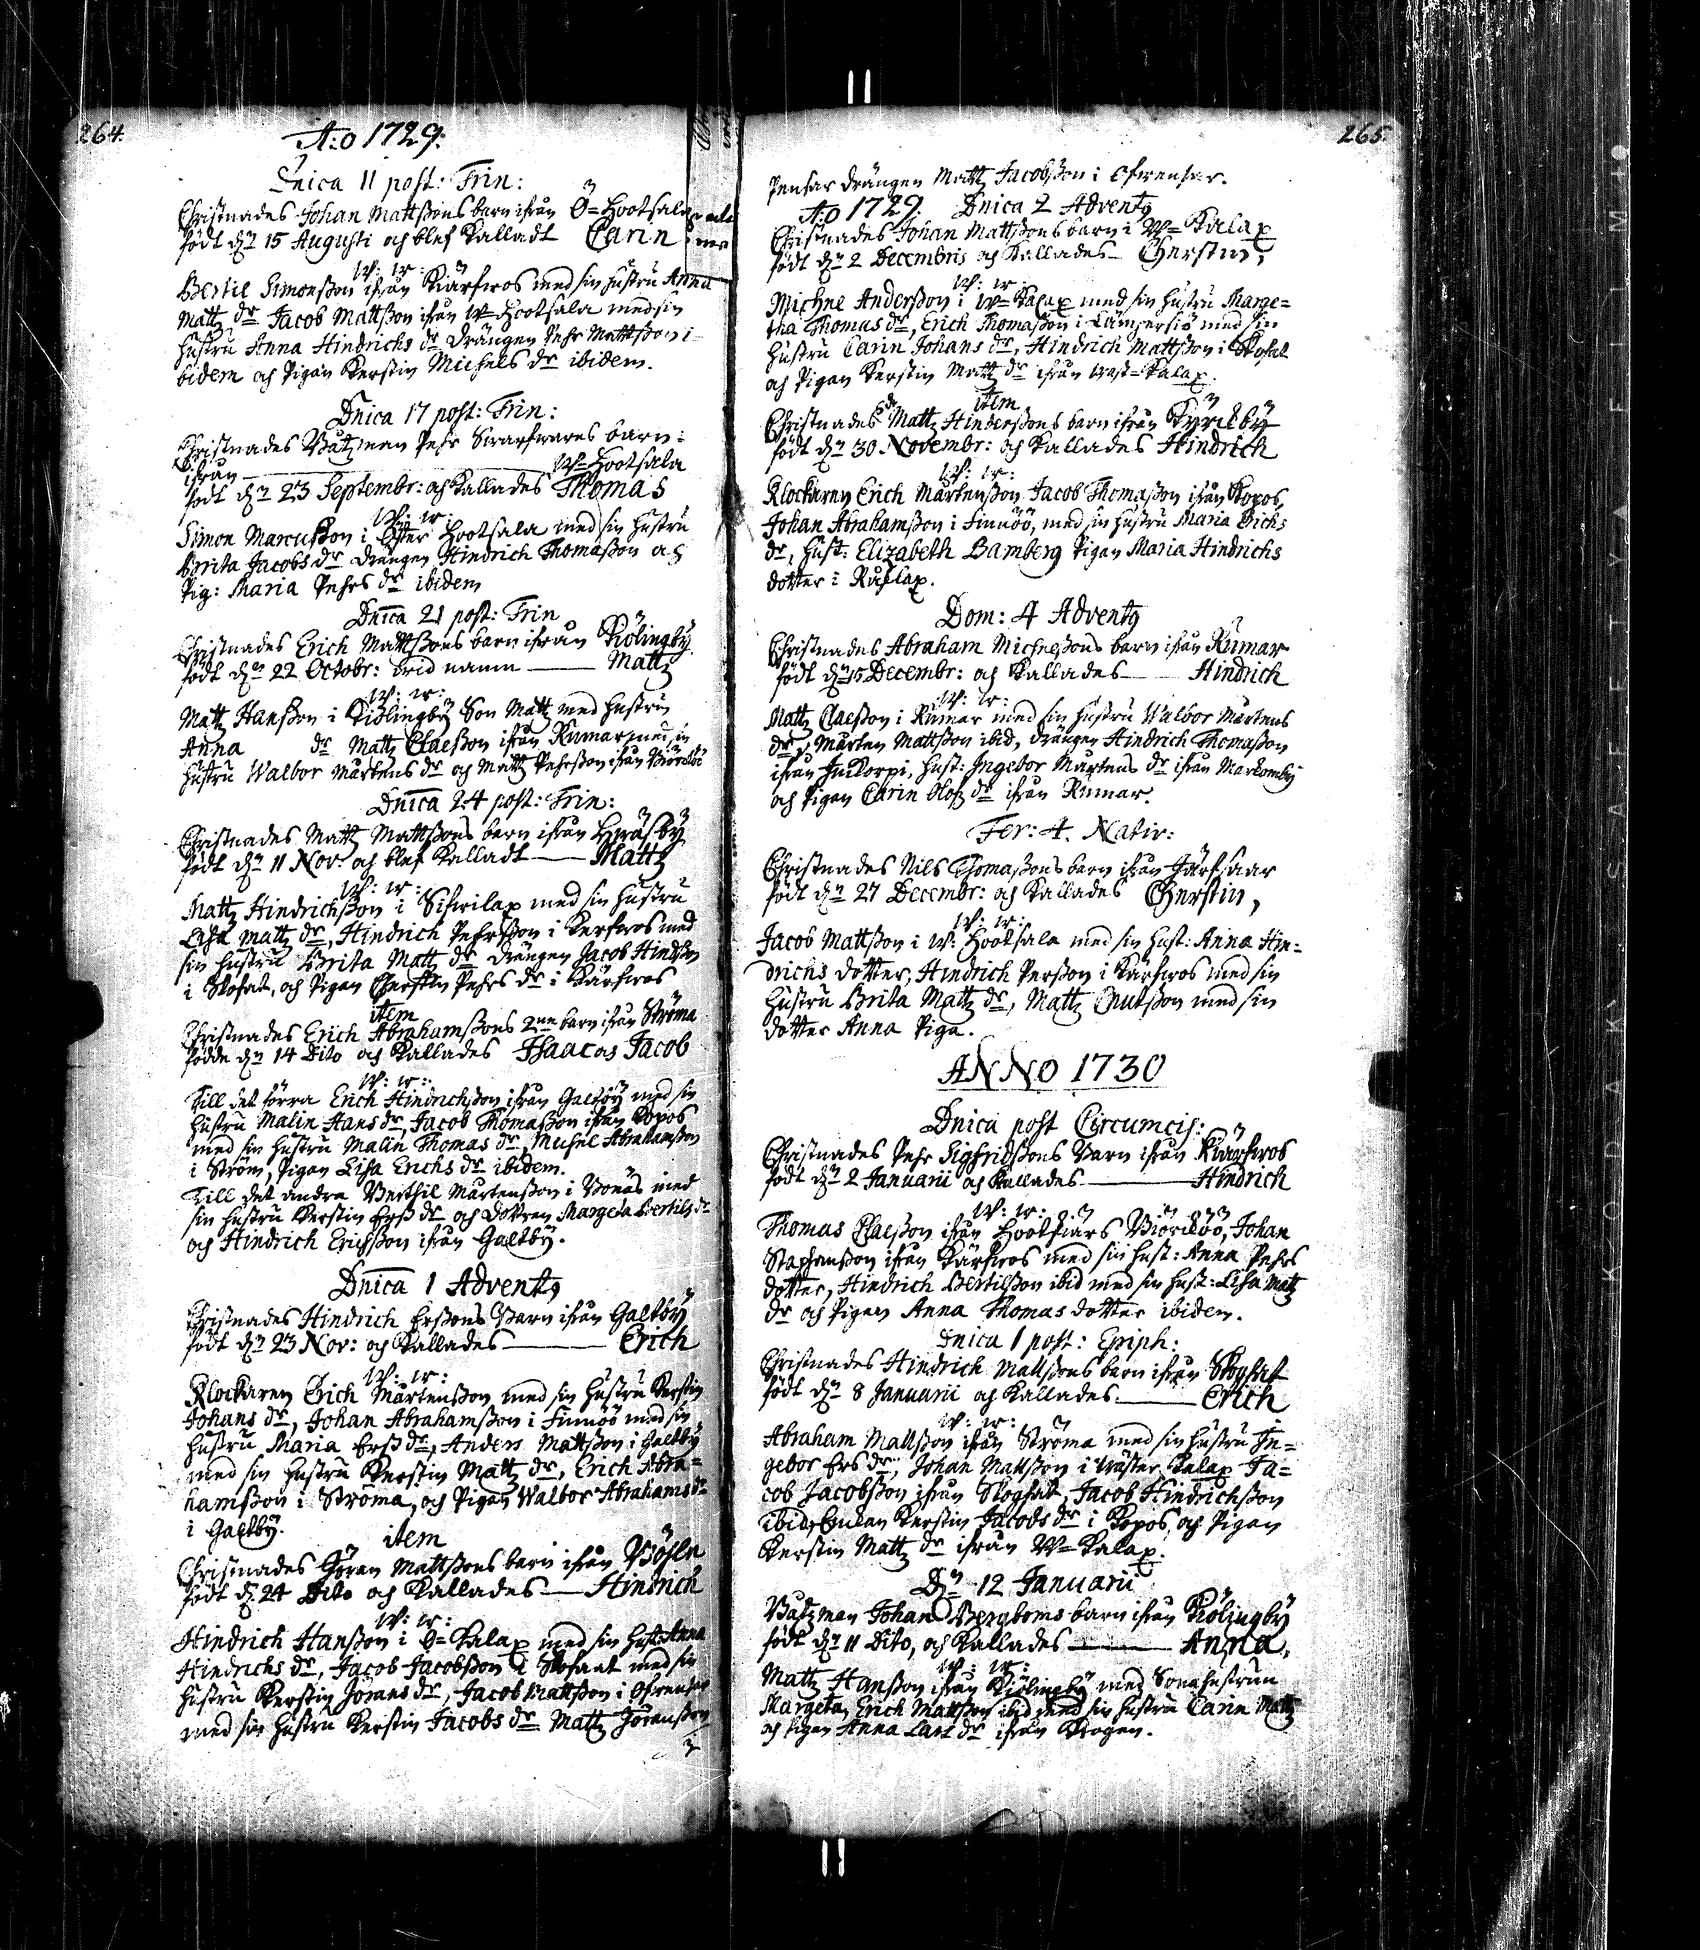 264.
A:o 1729:
Dnica 11 post: Trin:
Christnades Johan Mattssons barn ifrån Ö=Hootsala
födt dn 15 Augusti och blef Kalladt Carin
W: w:
Bertil Simonsson ifrån Kärfwos med sin hustru Anna
Matz dr Jacob Mattsson ifrån W=Hootsala med sin
hustru Anna Hindrichs dr Drängen Pehr Mattsson i
bidem och Pigan Kerstin Michels dr ibidem.
Dnica 17 post: Trin:
Christnades Båtzman Pehr Swarfwares barn:
ifrån W=Hootsala
födt dn 23 Septembr: och Kallades Thomas
W: w:
Simon Marcusson i Öster Hootsala med sin hustru
Brita Jacobs dr drängen Hindrich Thomasson och
Pig: Maria Pehrs dr ibidem
Dnica 21 post: Trin
Christnades Erich Mattssons barn ifrån Kölingby
födt dn 22 Octobr: wid namn Matz
W: w:
Matz Hansson i Kiölingby Son Matz med hustru
Anna dr Matz Claesson ifrån Rumar med sin
hustru Walbor Mårtens dr och Matz Pehrsson ifrån Biörköö
Dnica 24 post: Trin:
Christnades Matz Mattssons barn ifrån Gräsby
födt dn 11 Nov: och blef Kalladt Mattz
W: w:
Matz Hindrichsson i Sifwilax med sin hustru
Lisa Matz dr, Hindrich Pehrsson i Kerfwos med
sin hustru Brita Matz dr Drängen Jacob Hindsson
i Skofat, och Pigan Cherstin Pehrs dr i Kärfwos
item
Christnades Erich Abrahamssons 2ne barn ifrån Ströma
födde dn 14 Dito och Kallades Isaac os Jacob
W: w:
Till det förra Erich Hindrichsson ifrån Galtby med sin
hustru Malin Hans dr, Jacob Thomasson ifrån Kopos
med sin hustru Malin Thomas dr, Michel Abrahamsson
i Ström, Pigan Lisa Erichs dr ibidem.
Till det andra Berthil Mårtensson i Bonäs med
sin hustru Kerstin Erss dr och dottren Margeta Bertils dr
och Hindrich Erichsson ifrån Galtby.
Dnica 1 Advent9
Christnades Hindrich Erssons Barn ifrån Galtby
födt dn 23 Nov: och Kallades Erich
W: w:
Klockaren Erich Mårtensson med sin hustru Kerstin
Johans dr, Johan Abrahamsson i Finnöö med sin
hustru Maria Erss dr, Anders Mattsson i Galtby
med sin hustru Kerstin Matz dr, Erich Abra=
hamsson i Ströma, och Pigan Walbor Abrahams dr
i Galtby.
item
Christnades Jöran Mattssons barn ifrån Bösla
födt d. 24 Dito och Kallades Hindrich
W: w:
Hindrich Hansson i Ö=Kalax med sin hust: Anna
Hindrichs dr, Jacob Jacobsson i Skofaat med sin
hustru Kerstin Jörans dr, Jacob Mattsson i Ofrensar
med sin hustru Kerstin Jacobs dr Matz Joransson
265
Pensar drängen Matz Jacobsson i Ofwensar.
A:o 1729. Dnica 2 Advent9
Christnades Johan Mattssons barn i W=Kalax
födt dn 2 Decembris och Kallades Cherstin,
W: w:
Michel Andersson i W=Kalax med sin hustru Marge=
tha Thomas dr, Erich Thomasson i Lampersiö med sin
hustru Carin Johans dr, Hindrich Mattsson i Skofat
och Pigan Kerstin Matz dr ifrån Wäst=Kalax.
item
Christnades Matz Hinderssons barn ifrån Kyrckby
födt dn 30 Novembr: och Kallades Hindrich
W: w:
Klockaren Erich Mårtensson Jacob Thomasson ifrån Kopos,
Johan Abrahamsson i Finnöö, med sin hustru Maria Erichs
dr, Hust: Elizabeth Bamberg Pigan Maria Hindrichs
dotter i Råslax.
Dom: 4 Advent9
Christnades Abraham Michelssons barn ifrån Rumar
födt dn 15 Decembr: och Kallades Hindrich
W: w:
Matz Claesson i Rumar med sin hustru Walbor Mårtens
dr, Mårten Mattsson ibid, Drängen Hindrich Thomasson
ifrån Juckorpi, hust: Ingebor Mårtens dr ifrån Markomby
och Pigan Carin Olofz dr ifrån Rumar.
Fer: 4. Nativ:
Christnades Nils Thomassons barn ifrån Järfsaar
födt dn 27 Decembr: och Kallades Cherstin,
W: w:
Jacob Mattsson i W: Hootsala med sin hust: Anna Hin=
drichs dotter, Hindrich Persson i Kärfwos med sin
hustru Brita Matz dr, Matz Cnutsson med sin
dotter Anna Piga.
ANNO 1730
Dnica post Circumcis:
Christnades Pehr Sigfridssons Barn ifrån Kiärfwos
födt dn 2 Januarii och Kallades Hindrich
W: w:
Thomas Claesson ifrån Hootsiärs Biörköö, Johan
Staphansson ifrån Kärfwos med sin hust: Anna Pehrs
dotter, Hindrich Bertilsson ibid med sin hust: Lisa Matz
dr och Pigan Anna Thomas dotter ibidem.
Dnica 1 post: Epiph:
Christnades Hindrich Mattssons barn ifrån Skogfat
födt dn 8 Januarii och Kallades Erich
W: w:
Abraham Mattsson ifrån Ströma med sin hustru In=
gebor Ers dr, Johan Mattsson i Wäster Kalax Ja=
cob Jacobsson ifrån Skogfat, Jacob Hindrichsson
ibid, Enkan Kerstin Jacobs dr i Kopos, och Pigan
Kerstin Matz dr ifrån W=Kalax.
Dn 12 Januarii
Båtzman Johan Bergboms barn ifrån Kölingby
födt dn 11 Dito, och Kallades Anna,
W: w:
Matz Hansson ifrån Kiölingby med Sonahustrun
Margeta, Erich Mattsson ibid med sin hustru Carin Matz
och Pigan Anna Lars dr ifrån Krogen.
KODAK SAFETY FILM